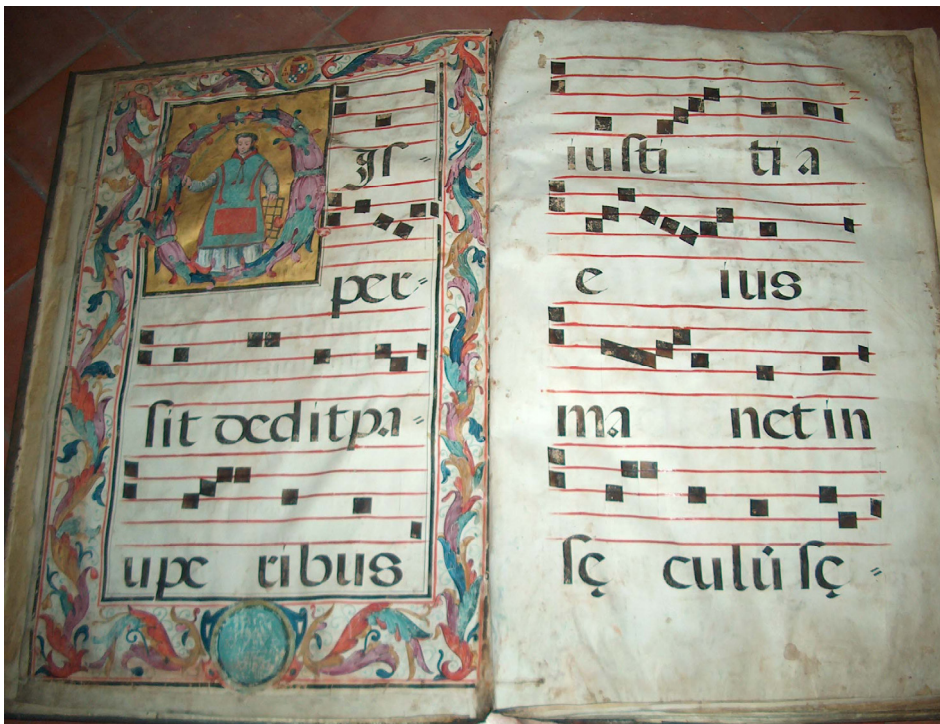 DIſ=
per
ſit dedit pa=
upe ribus
iuſti tia
e ius
ma net in
ſę culū ſę=